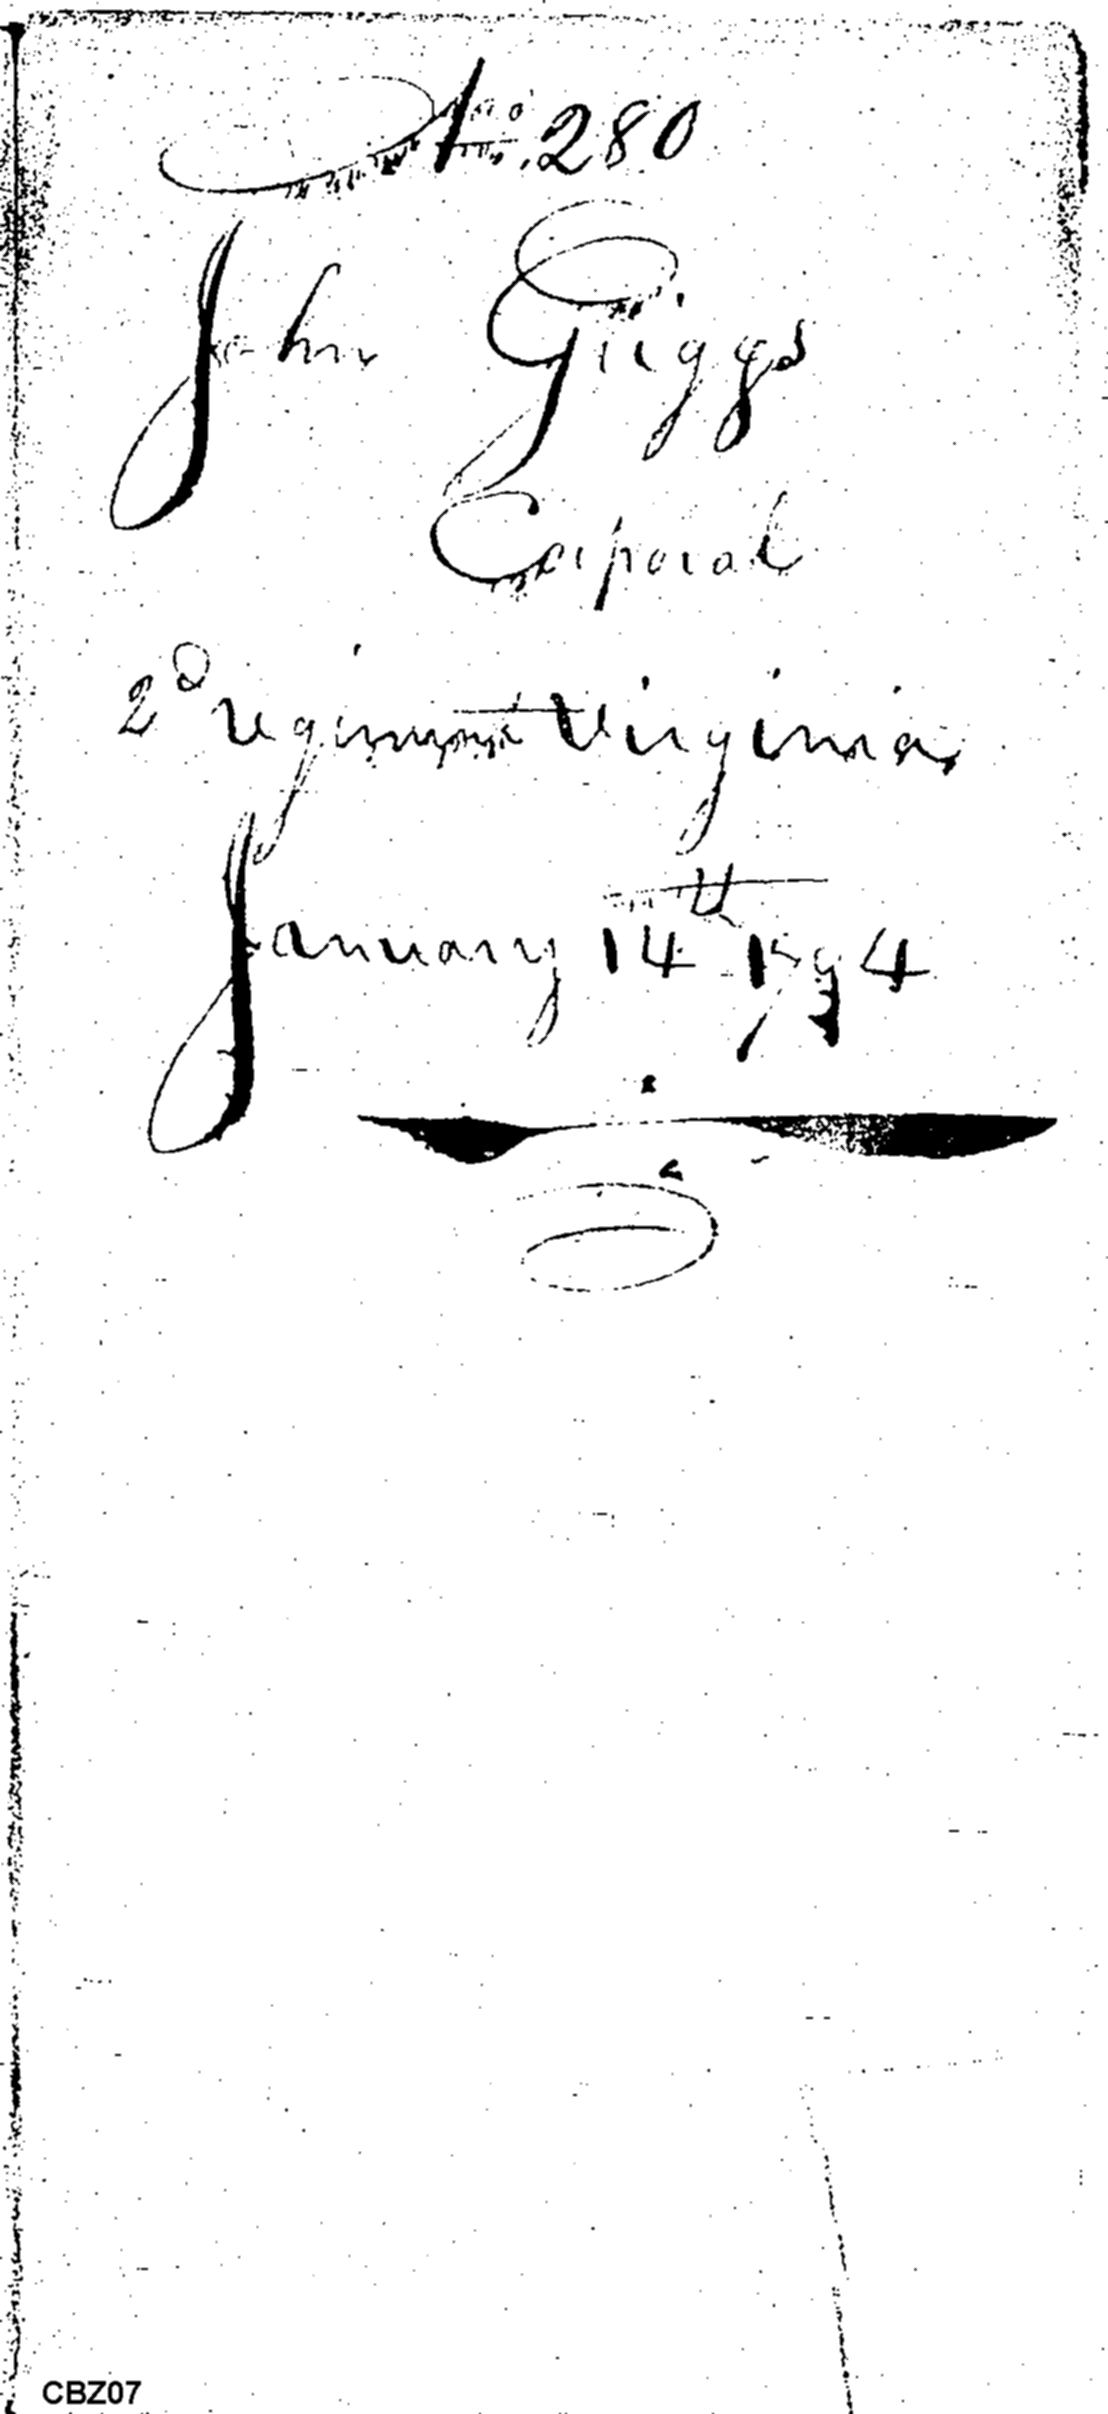 No. 280
John Griggs
Corporal
2d regiment Virginia
January 14th 1794
CBZ07